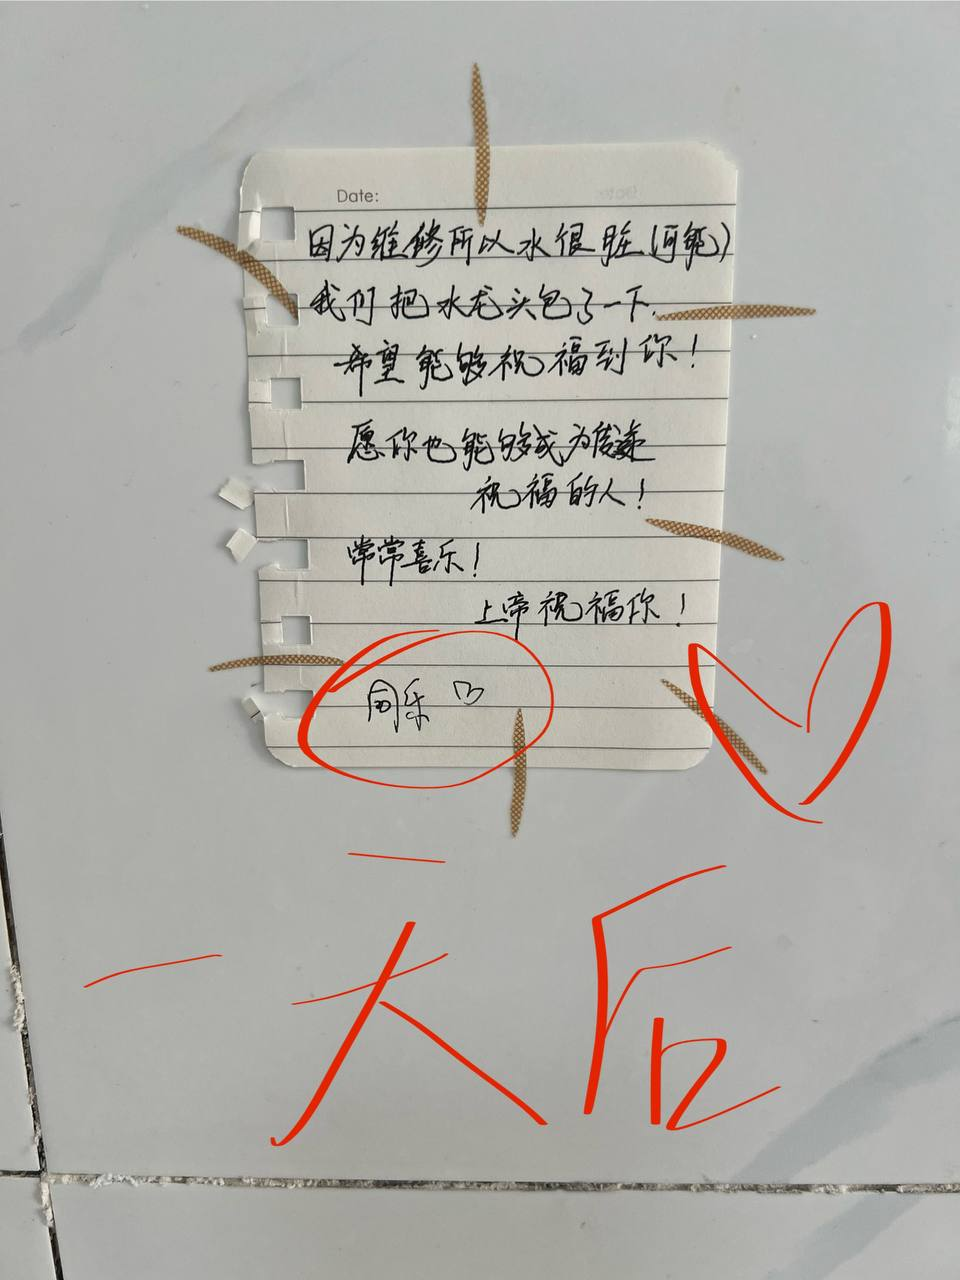 Date:
因为维修所以水很脏(可能)
我们把水龙头包了一下.
希望能够祝福到你!
愿你也能够成为传递
祝福的人!
常常喜乐!
上帝祝福你!
同乐
一天后